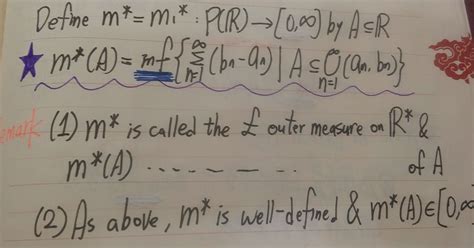 Define m* = m₁* : P(ℝ) → [0,∞] by A ⊆ ℝ
★ m*(A) = inf { ∞Σn=1 (bn - an) | A ⊆ ∞∪n=1 (an, bn) }
emark (1) m* is called the £ outer measure on ℝ* &
m*(A) ‒ ‒ ‒ ‒ ‒ ‒ ‒ of A
(2) As above, m* is well-defined & m*(A) ∈ [0,∞